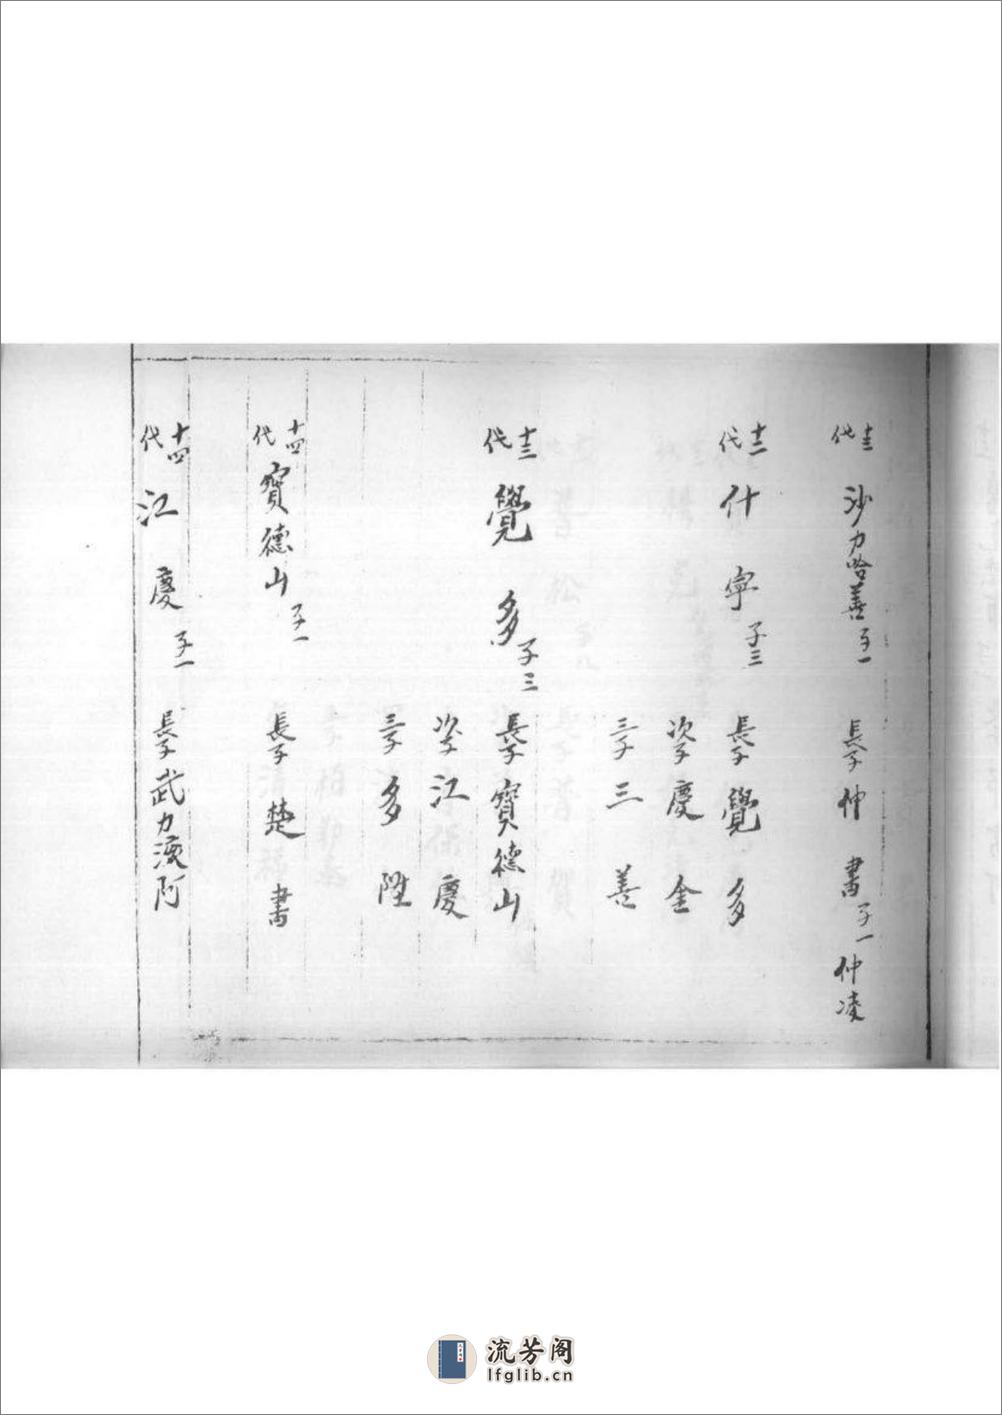 十三代 沙力哈善 子一 長子 伸書 子一 仲凌
十二代 什寧 子三 長子 覺多
次子 慶金
三子 三善
十三代 覺多 子三 長子 寶德山
次子 江慶
三子 多陞
十四代 寶德山 子一 長子 清楚書
十四代 江慶 子一 長子 武力渡阿
流芳阁
lfglib.cn